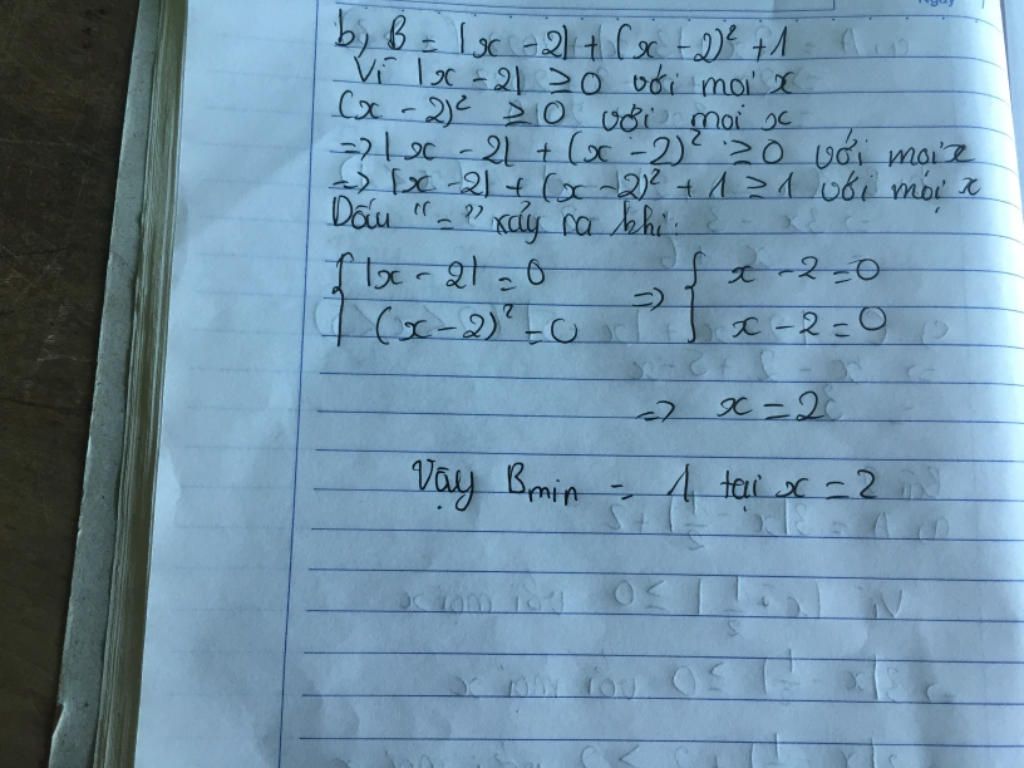 b, B = |x - 2| + (x - 2)² + 1
Vì |x - 2| ≥ 0 với mọi x
(x - 2)² ≥ 0 với mọi x
=> |x - 2| + (x - 2)² ≥ 0 với mọi x
=> |x - 2| + (x - 2)² + 1 ≥ 1 với mọi x
Dấu "=" xảy ra khi:
{ |x - 2| = 0 => { x - 2 = 0
(x - 2)² = 0 x - 2 = 0
=> x = 2
Vậy Bmin = 1 tại x = 2